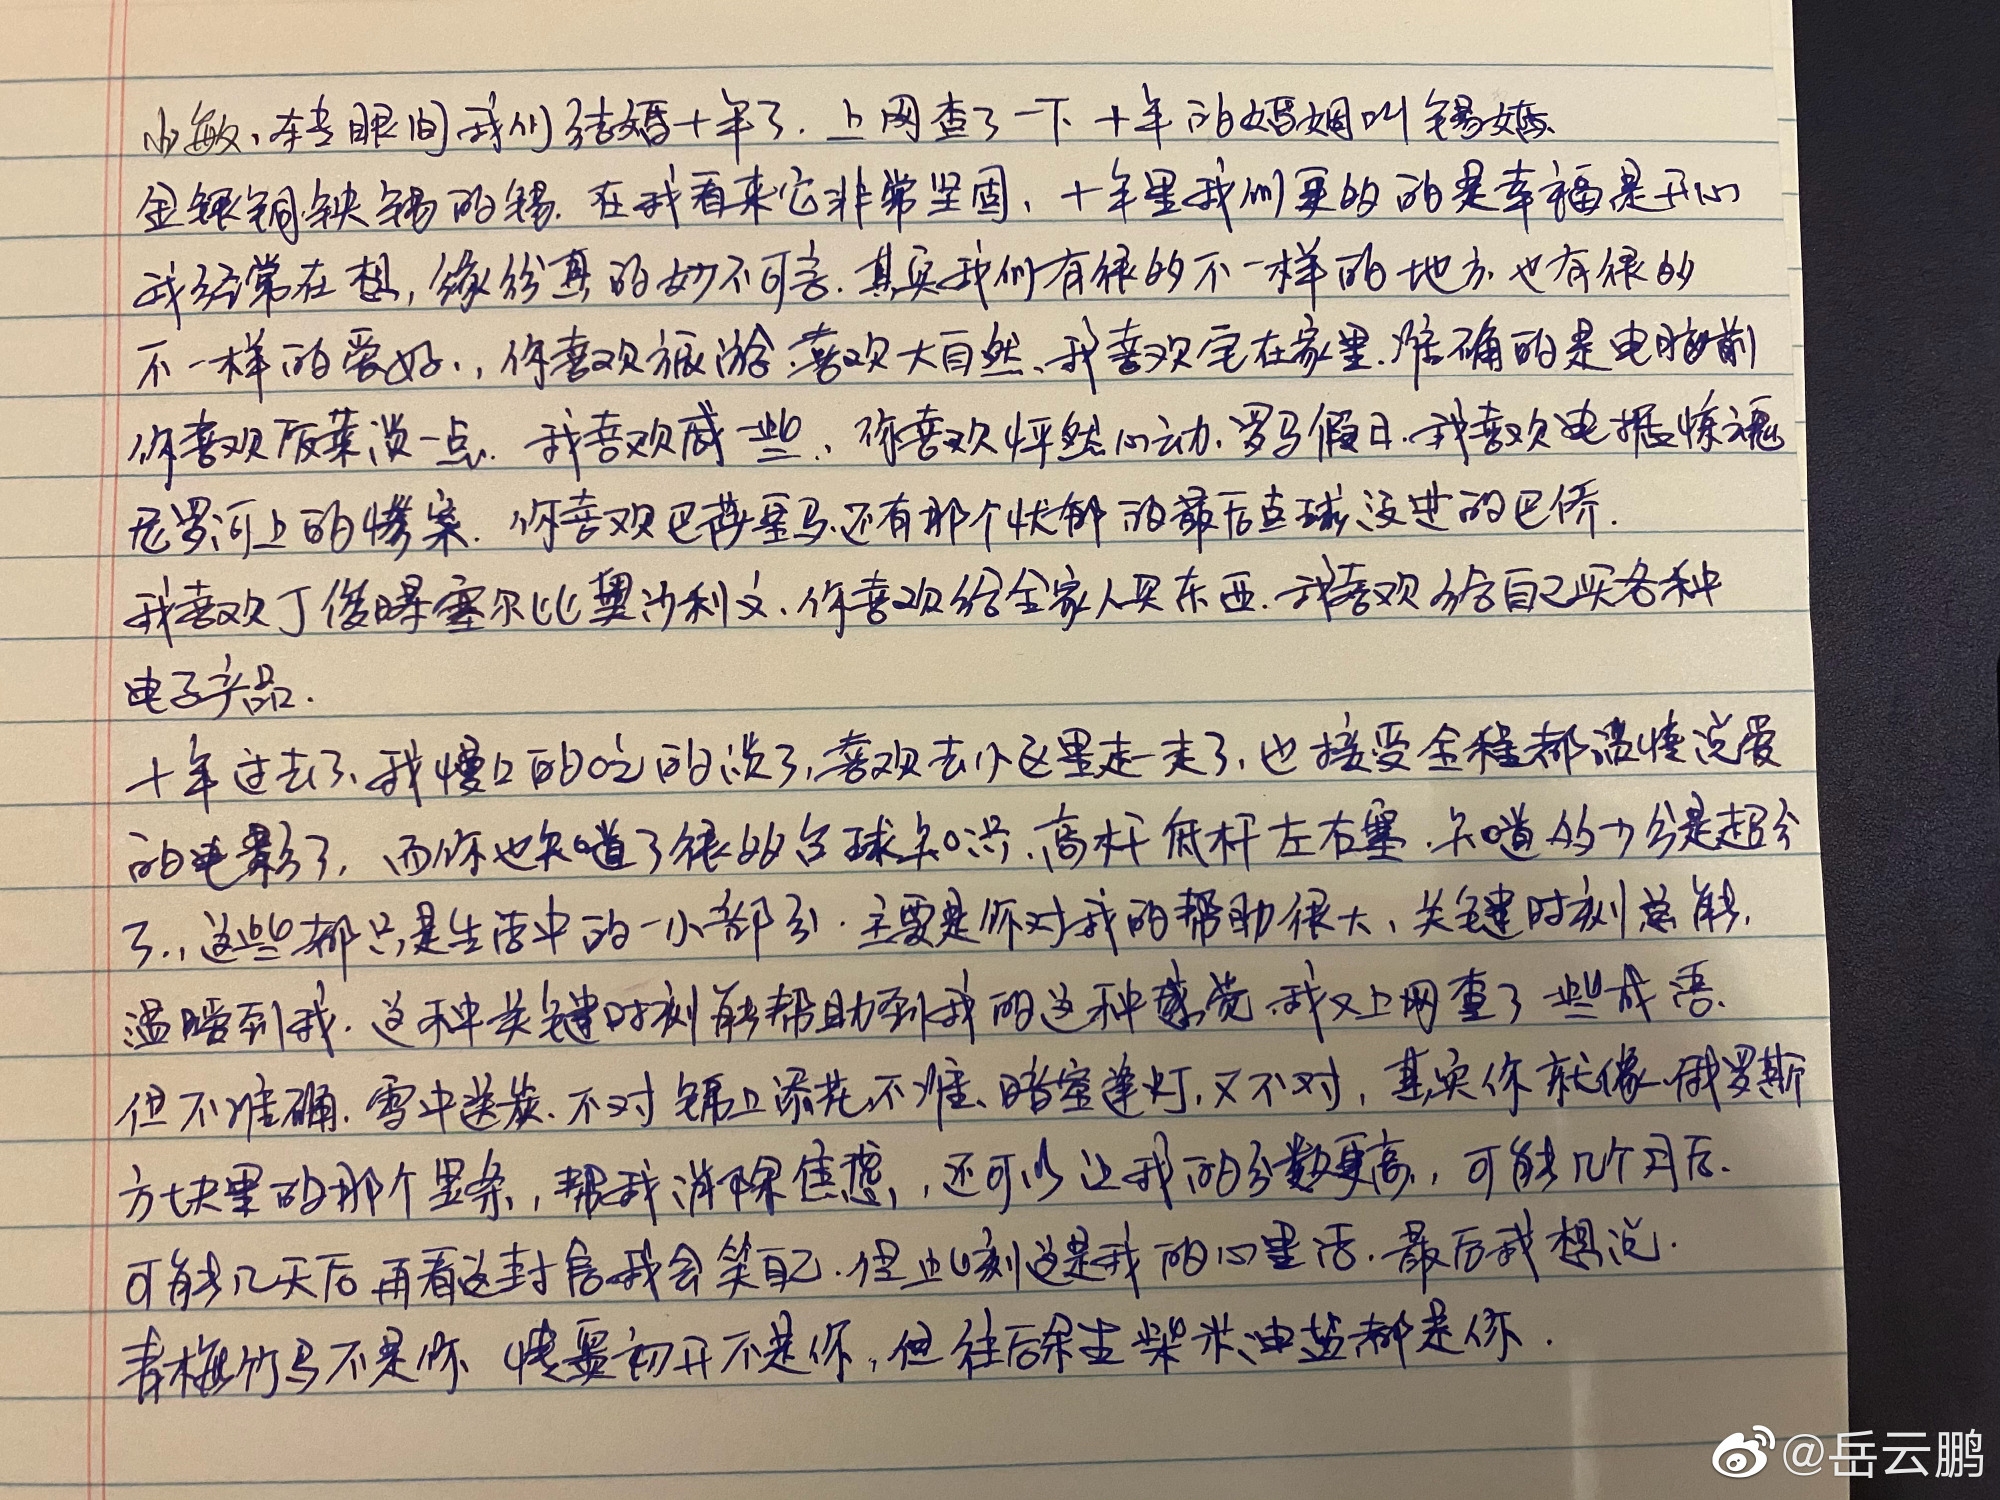 小敏、转眼间我们结婚十年了.上网查了一下十年的婚姻叫锡婚.
金银铜铁锡的锡.在我看来它非常坚固、十年里我们更多的是幸福是开心
我经常在想,缘分真的妙不可言.其实我们有很多不一样的地方.也有很多
不一样的爱好.,你喜欢旅游.喜欢大自然、我喜欢宅在家里.准确的是电脑前
你喜欢饭菜淡一点.我喜欢咸一些.,你喜欢怦然心动.罗马假日.我喜欢电锯惊魂
尼罗河上的惨案.你喜欢巴萨皇马.还有那个忧郁的最后点球没进的巴侨.
我喜欢丁俊晖塞尔比奥沙利文、你喜欢给全家人买东西.我喜欢给自己买各种
电子产品.
十年过去了.我慢口的吃的淡了,喜欢去小区里走一走了,也接受全程都温情说爱
的电影了,而你也知道了很多台球知识.高杆低杆左右塞.知道多少分是超分
了.,这些都只是生活中的一小部分.主要是你对我的帮助很大、关键时刻总能.
温暖到我.这种关键时刻能帮助到我的这种感觉.我又上网查了一些成语.
但不准确.雪中送炭.不对锦上添花.不准、暗室逢灯,又不对,其实你就像.俄罗斯
方块里的那个竖条,帮我消除焦虑,,还可以让我的分数更高.,可能几个月后.
可能几天后再看这封信我会笑自己.但此刻这是我的心里话.最后我想说.
青梅竹马不是你 情窦初开不是你,但往后余生柴米油盐都是你.
@岳云鹏